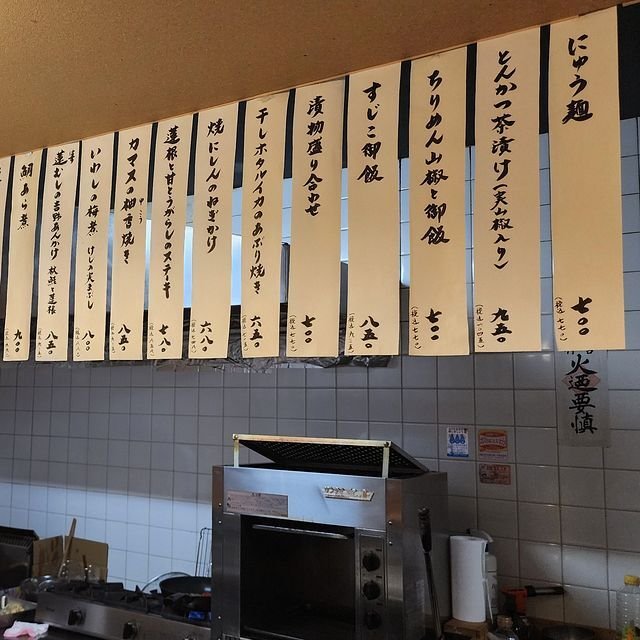 にゅう麺
七〇〇
(税込七七〇)
とんかつ茶漬け(実山椒入り)
九五〇
ちりめん山椒と御飯
七〇〇
(税込七七〇)
すじこ御飯
八五〇
漬物盛り合わせ
七〇〇
干しホタルイカのあぶり焼き
六五〇
焼にしんのねぎかけ
六八〇
蓮根と甘とうがらしのステーキ
七八〇
カマスの柚香焼き
ゆこう
八五〇
いわしの梅煮 けしの実まぶし
八〇〇
蓮むしの吉野あんかけ 秋鮭と蓮根
八五〇
鯛あら煮
九〇〇
火迺要慎